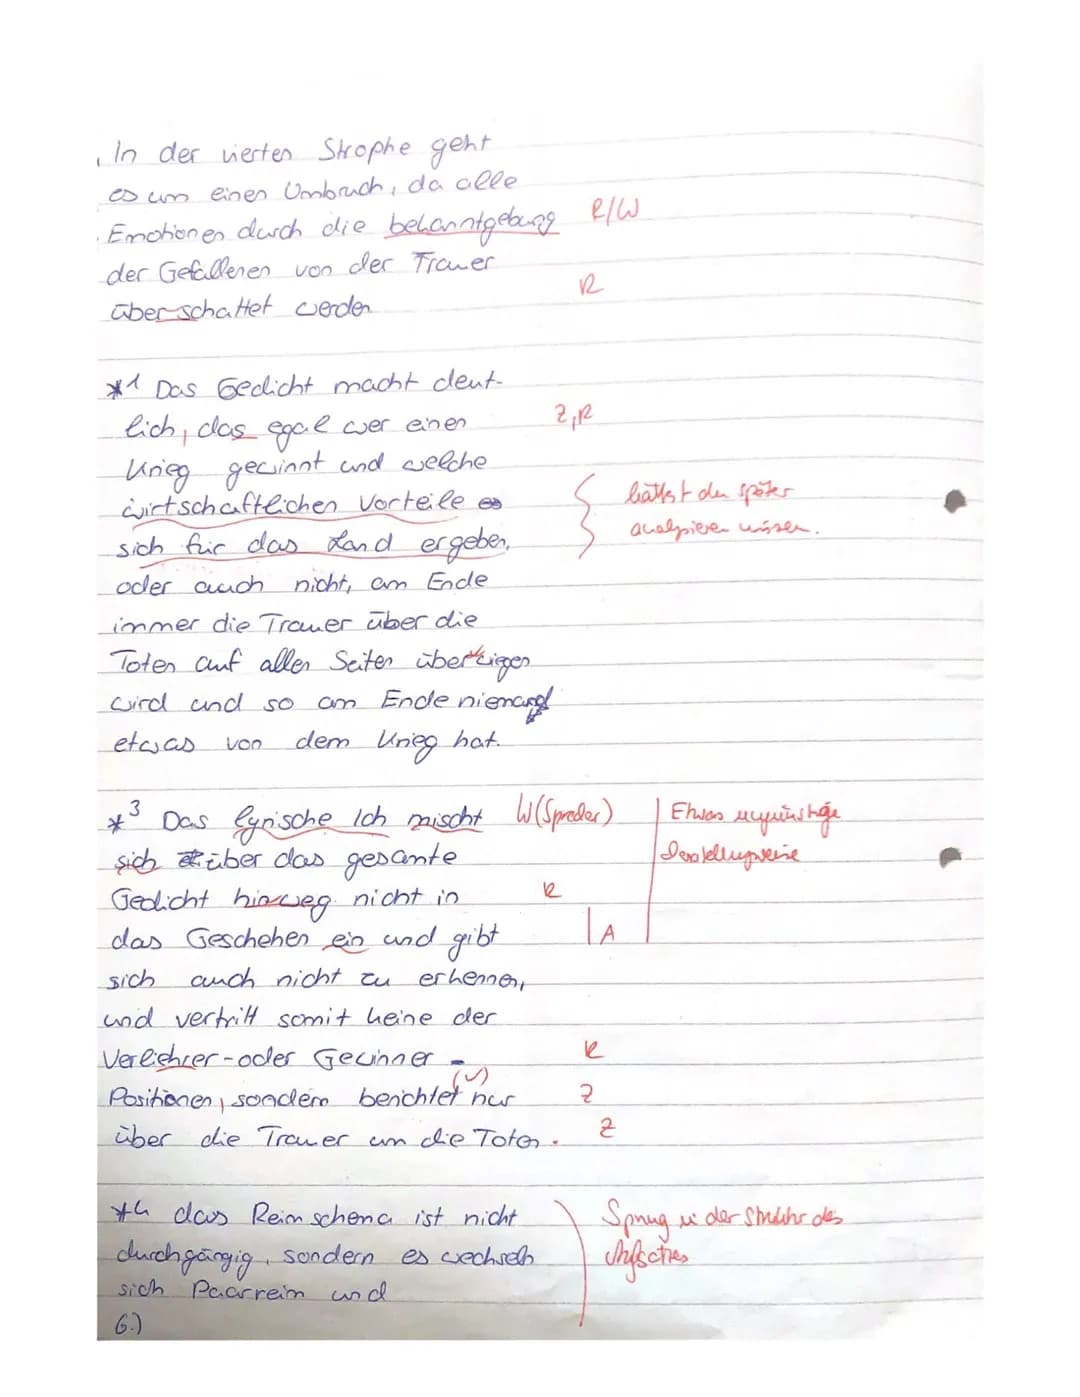 In der vierten Strophe geht
es um einen Umbruch, da alle
Emotionen durch die bekanntgebung R/W
der Gefallenen von der Trauer
über schattet werden R
*1 Das Gedicht macht deut-
lich, das egal wer einen Z, R
Krieg gewinnt und welche
wirtschaftlichen Vorteile hättest du später
sich für das Land ergeben, analysieren müssen.
oder auch nicht, am Ende
immer die Trauer über die
Toten auf allen Seiten
wird und so am Ende niemand
etwas von dem Krieg hat.
*3 Das lyrische Ich mischt W (Sprecher) Etwas ungünstige
sich über das gesamte Darstellungsweise
Gedicht hinweg nicht in R
das Geschehen ein und gibt A
sich auch nicht zu erkennen,
und vertritt somit keine der
Verliehrer-oder Gewinner - R
Positionen, sondern berichtet nur Z
über die Trauer um die Toten. Z
*4 das Reimschema ist nicht Sprung in der Struktur des
durchgängig, sondern es wechseln Aufsatzes
sich Paarreim und
6.)